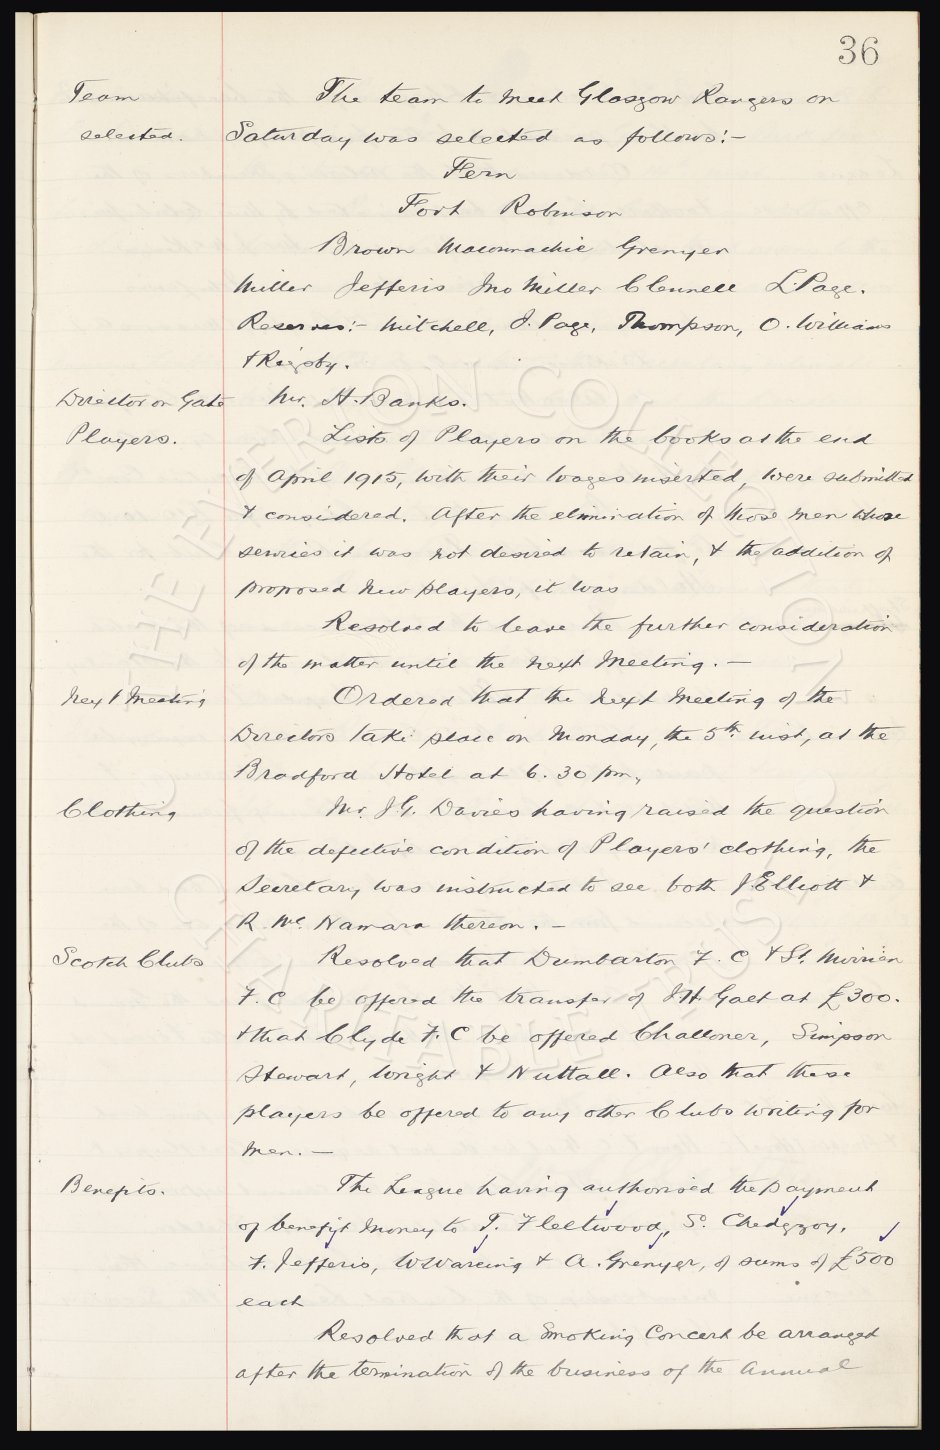 36
Team The team to meet Glasgow Rangers on
selected. Saturday was selected as follows:-
Fern
Fort Robinson
Brown Maconnachie Grenyer
Miller Jefferis Jno Miller Clennell L. Page.
Reserves:- Mitchell, J. Page, Thompson, O. Williams
& Rigsby.
Director on Gate Mr. H. Banks.
Players. Lists of Players on the books at the end
of April 1915, with their wages inserted, were submitted
& considered. After the elimination of those men whose
services it was not desired to retain, & the addition of
proposed new players, it was
Resolved to leave the further consideration
of the matter until the next Meeting. —
Next Meeting Ordered that the next Meeting of the
Directors take place on Monday, the 5th inst, at the
Bradford Hotel at 6.30 pm,
Clothing Mr. J. G. Davies having raised the question
of the defective condition of Players' clothing, the
Secretary was instructed to see both J Elliott &
R. Mc. Namara thereon. —
Scotch Clubs Resolved that Dumbarton F. C & St. Mirrien
F. C be offered the transfer of J H. Galt at £300.
& that Clyde F. C be offered Challoner, Simpson
Stewart, Wright & Nuttall. Also that these
players be offered to any other Clubs writing for
men. —
Benefits. The League having authorised the payment
of benefit money to T. Fleetwood, S. Chedgzoy,
F. Jefferis, W Wareing & A. Grenyer, of sums of £500
each
Resolved that a Smoking Concert be arranged
after the termination of the business of the Annual
THE EVERTON COLLECTION
CHARITABLE TRUST